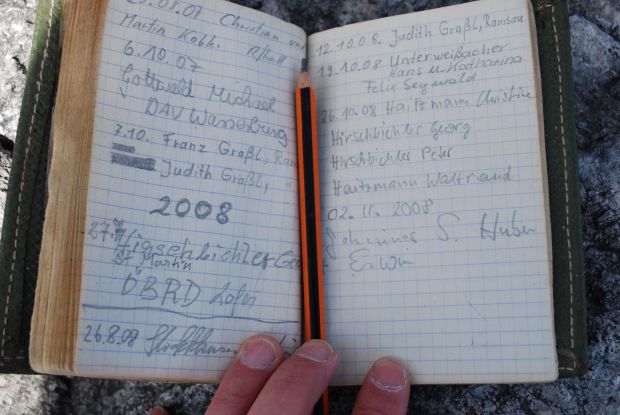 .08.07 Christian und
Martin Kohle. R/hall
6.10.07
Gottwald Michael
DAV Wasserburg
7.10. Franz Graßl, Ram
Judith Graßl, "
2008
27.7
St Martin
ÖBRD Lofer
26.8.08
12.10.08. Judith Graßl, Ramsau
19.10.08 Unterweißacher
Hans u. Katharina
Felix Seywald
26.10.08 Haitzmann Christine
Hirschbichler Georg
Hirschbichler Peter
Haitzmann Waltraud
02.11.2008
Johannes S. Huber
Erwin